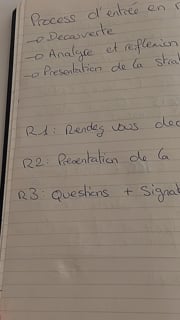 Process d'entrée en
→ Decouverte
→ Analyse et reflexion
→ Presentation de la strat
R1: Rendez vous dec
R2: Presentation de la
R3: Questions + Signat